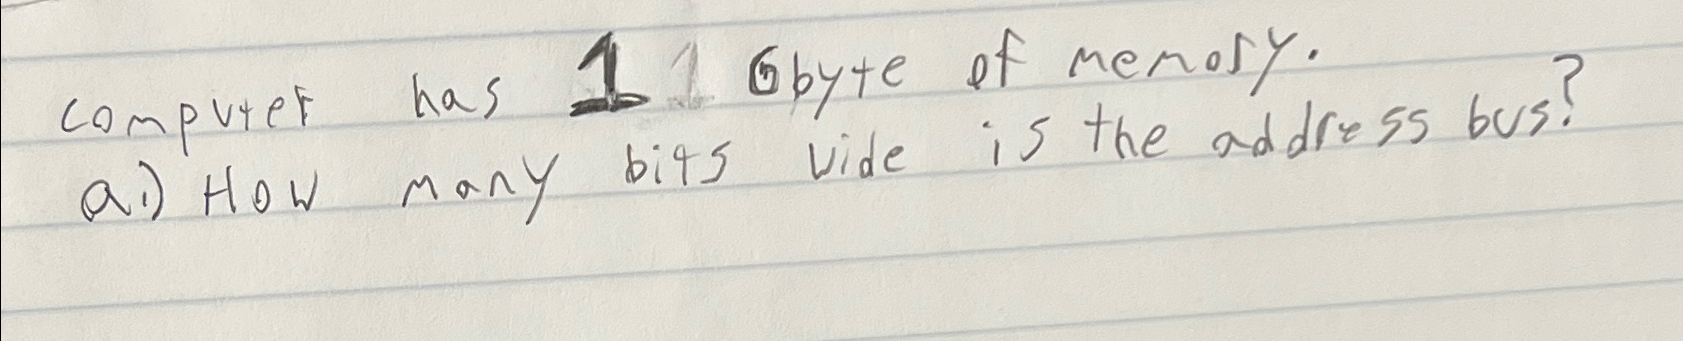 computer has 1 1 Gbyte of memory.
a.) How many bits wide is the address bus?